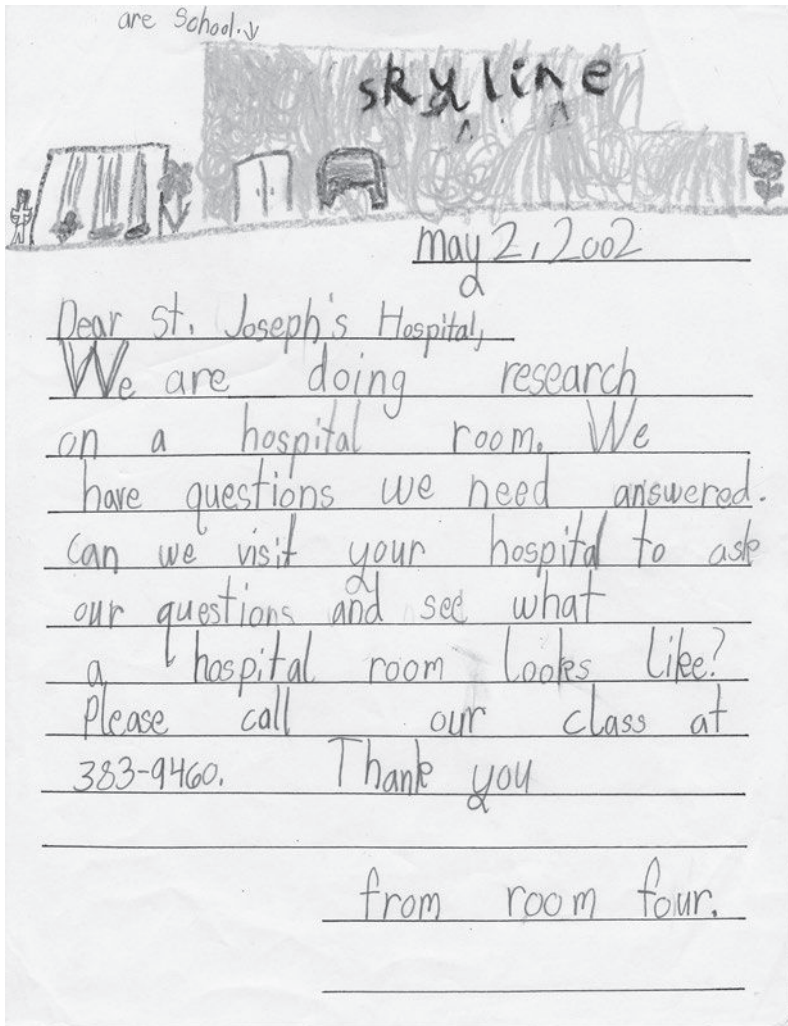 are School.↓
skyline
may 2, 2002
Dear St. Joseph's Hospital,
We are doing research
on a hospital room. We
have questions we need answered.
can we visit your hospital to ask
our questions and see what
a hospital room looks like?
Please call our class at
383-9460. Thank you
from room four.